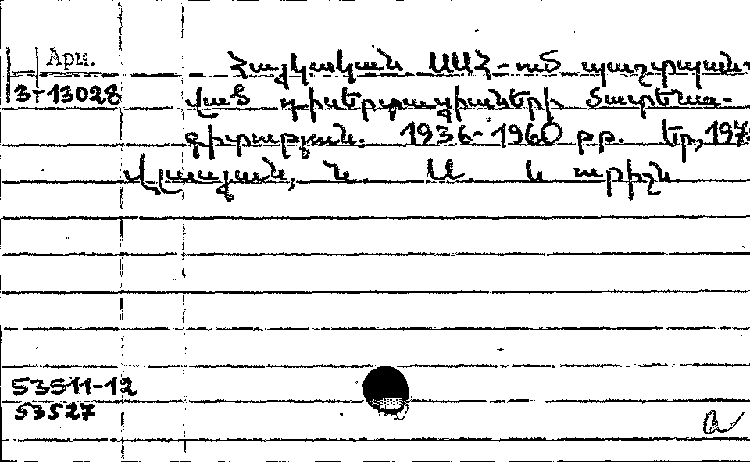 Арм.
3-13028
Հայկական ՍՍՀ-ում պաշտպան-
ված դիսերտացիաների մատենա-
գիտություն. 1936-1960 թթ. Եր., 197
Վլասյան, Ն. Ա. և ուրիշն.
53511-12
53527